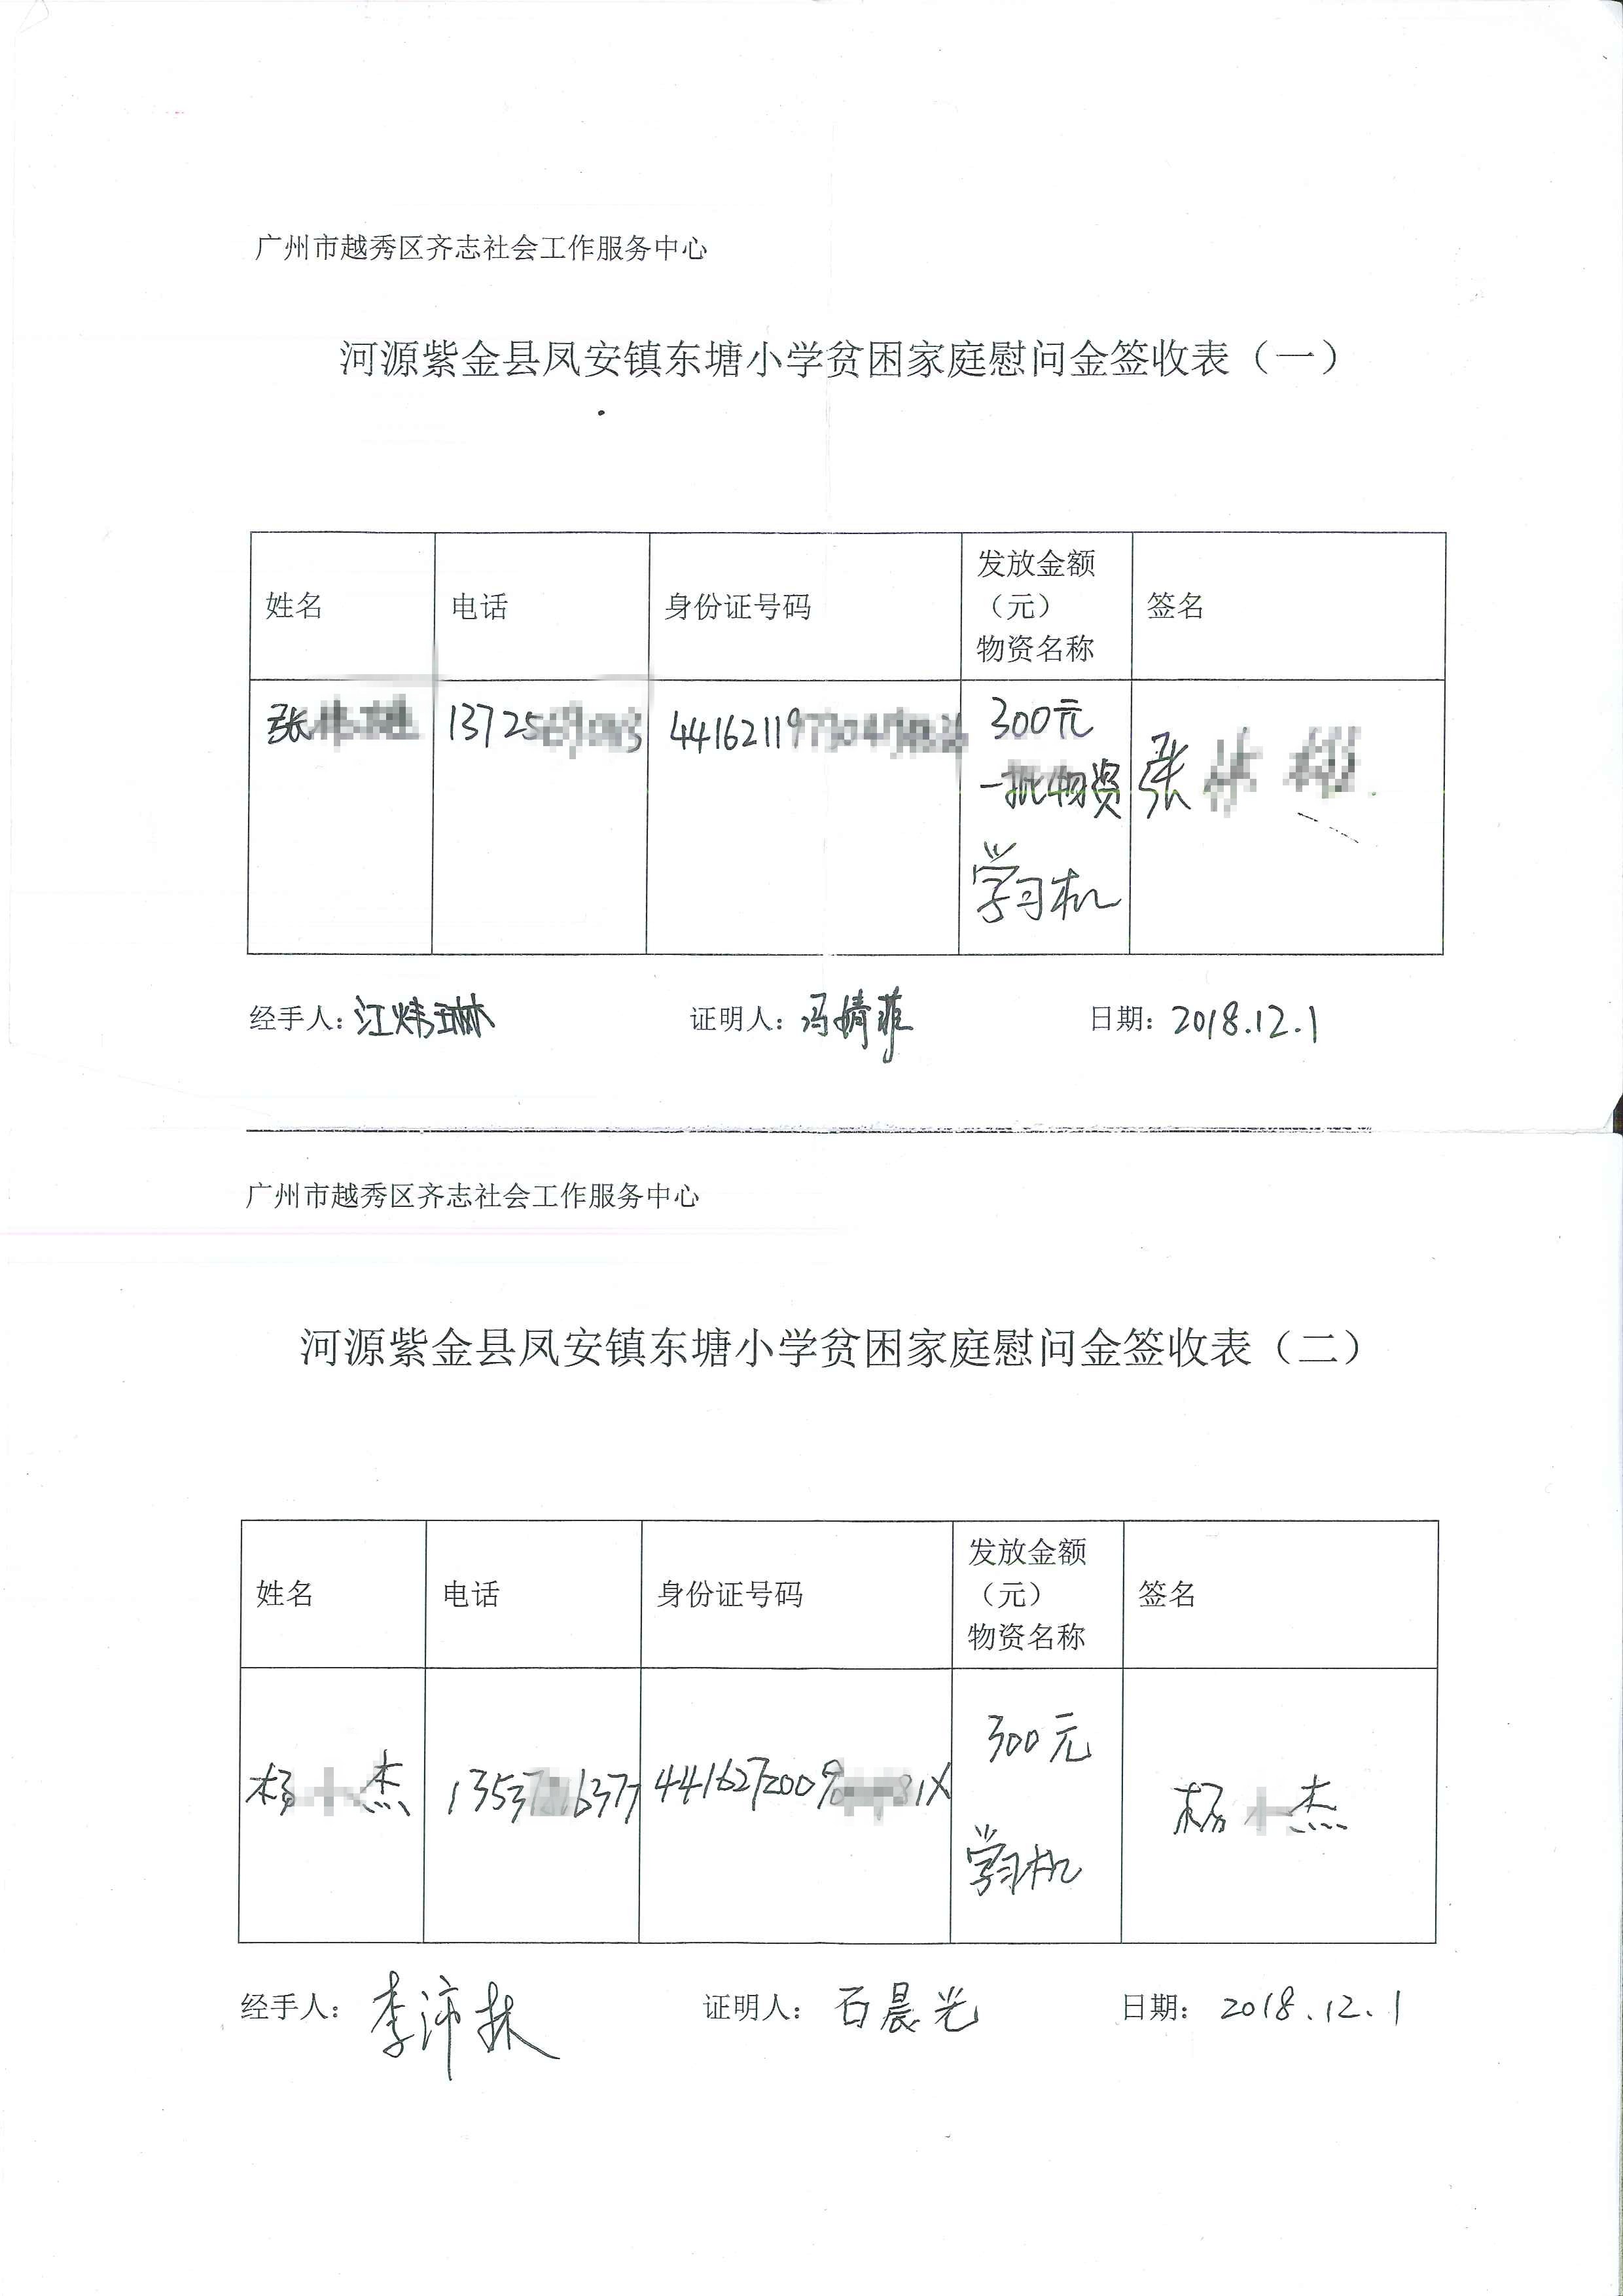 广州市越秀区齐志社会工作服务中心
河源紫金县凤安镇东塘小学贫困家庭慰问金签收表（一）
姓名 电话 身份证号码 发放金额（元）物资名称 签名
张 13725 44162119 300元 张
一批物资
学习机
经手人：江炜琳 证明人：冯婧菲 日期：2018.12.1
广州市越秀区齐志社会工作服务中心
河源紫金县凤安镇东塘小学贫困家庭慰问金签收表（二）
姓名 电话 身份证号码 发放金额（元）物资名称 签名
杨 杰 1353 6377 4416272009 1X 300元 杨 杰
学习机
经手人：李沛林 证明人：石晨光 日期：2018.12.1